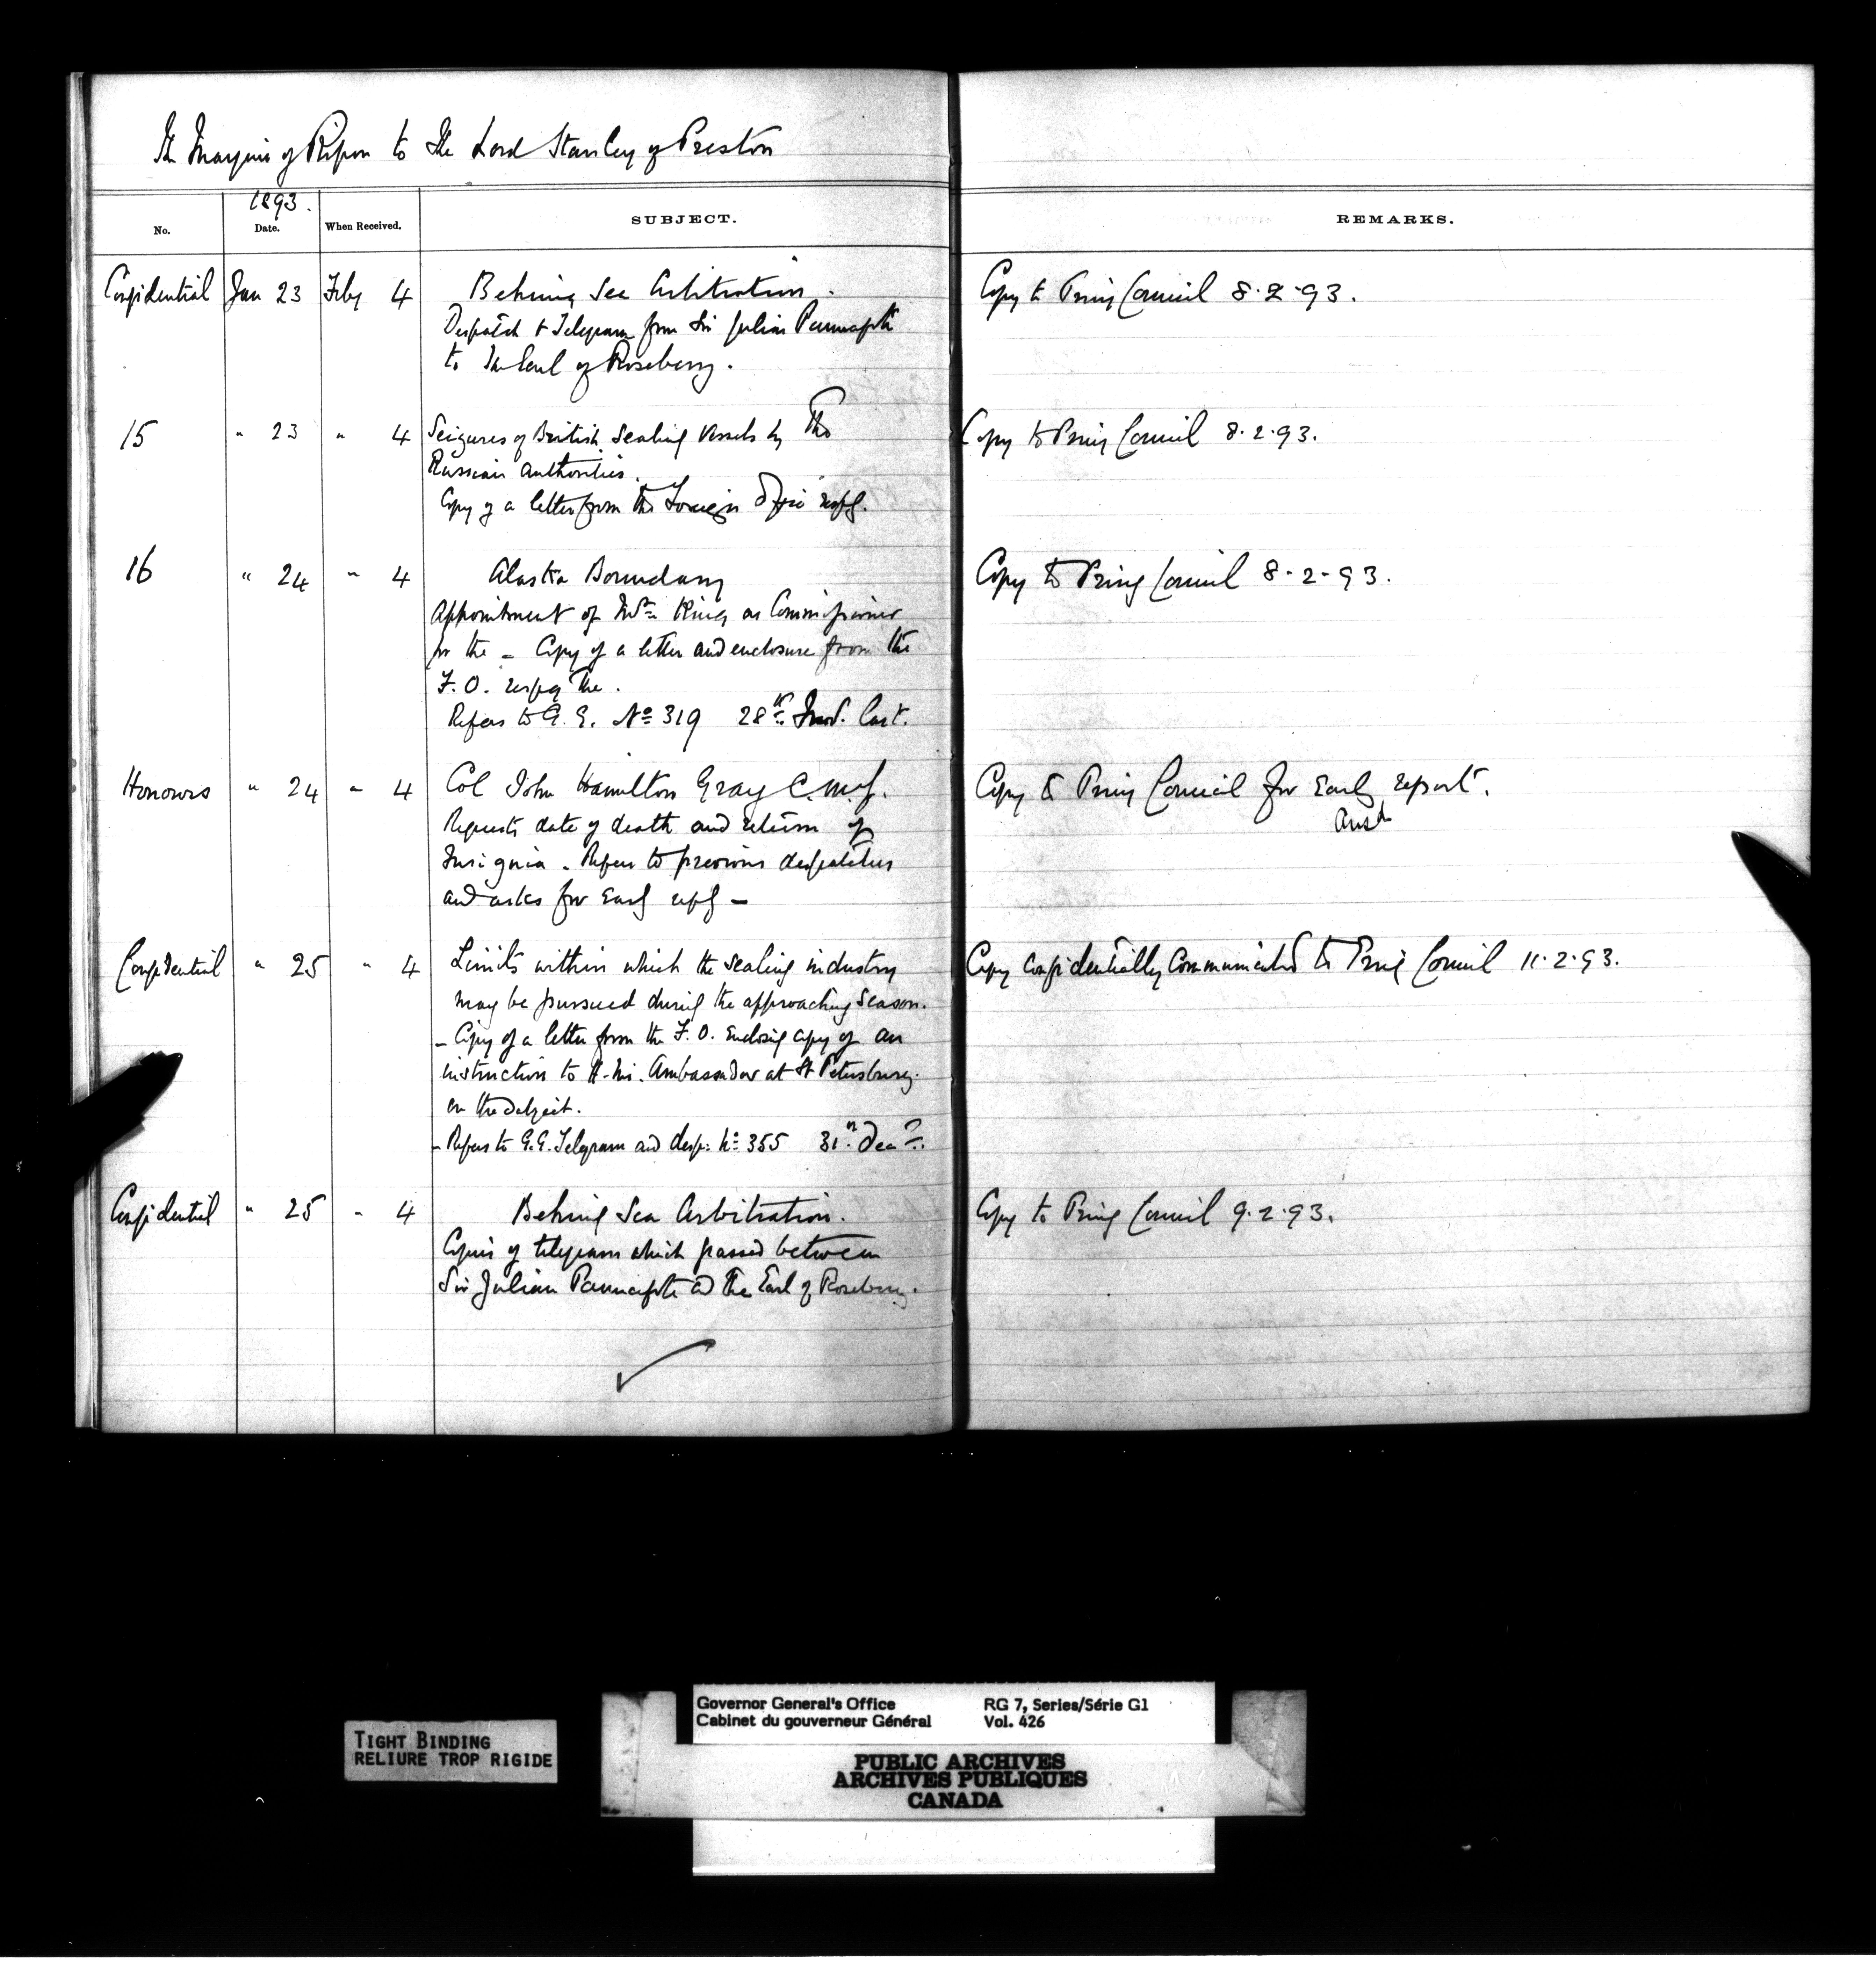 The Marquis of Ripon to The Lord Stanley of Preston
1893.
No. Date. When Received. SUBJECT. REMARKS.
Confidential Jan 23 Feby 4 Behring Sea Arbitration. Copy to Privy Council 8.2.93.
Despatch & Telegram from Sir Julian Pauncefote
to The Earl of Rosebery.
15 " 23 " 4 Seizures of British Sealing Vessels by The Copy to Privy Council 8.2.93.
Russian Authorities.
Copy of a letter from the Foreign Office respg.
16 " 24 " 4 Alaska Boundary Copy to Privy Council 8-2-93.
Appointment of Mr King as Commissioner
for the - Copy of a letter and enclosure from the
F.O. respg the.
Refers to G.G. No 319 28th Last.
Honours " 24 " 4 Col John Hamilton Gray C.M.G. Copy to Privy Council for Early report.
Ansd
Requests date of death and return of
Insignia - Refers to previous despatches
and asks for Early reply -
Confidential " 25 " 4 Limits within which the sealing industry Copy confidentially communicated to Privy Council 11.2.93.
may be pursued during the approaching Season.
- Copy of a letter from the F.O. Enclosing copy of an
instruction to H.M. Ambassador at St Petersburg.
on the subject.
- Refers to G.G. Telegram and desp: No 355 31st Decr.
Confidential " 25 " 4 Behring Sea Arbitration. Copy to Privy Council 9.2.93.
Copies of telegrams which passed between
Sir Julian Pauncefote and The Earl of Rosebery.
TIGHT BINDING
RELIURE TROP RIGIDE
Governor General's Office RG 7, Series/Série G1
Cabinet du gouverneur Général Vol. 426
PUBLIC ARCHIVES
ARCHIVES PUBLIQUES
CANADA